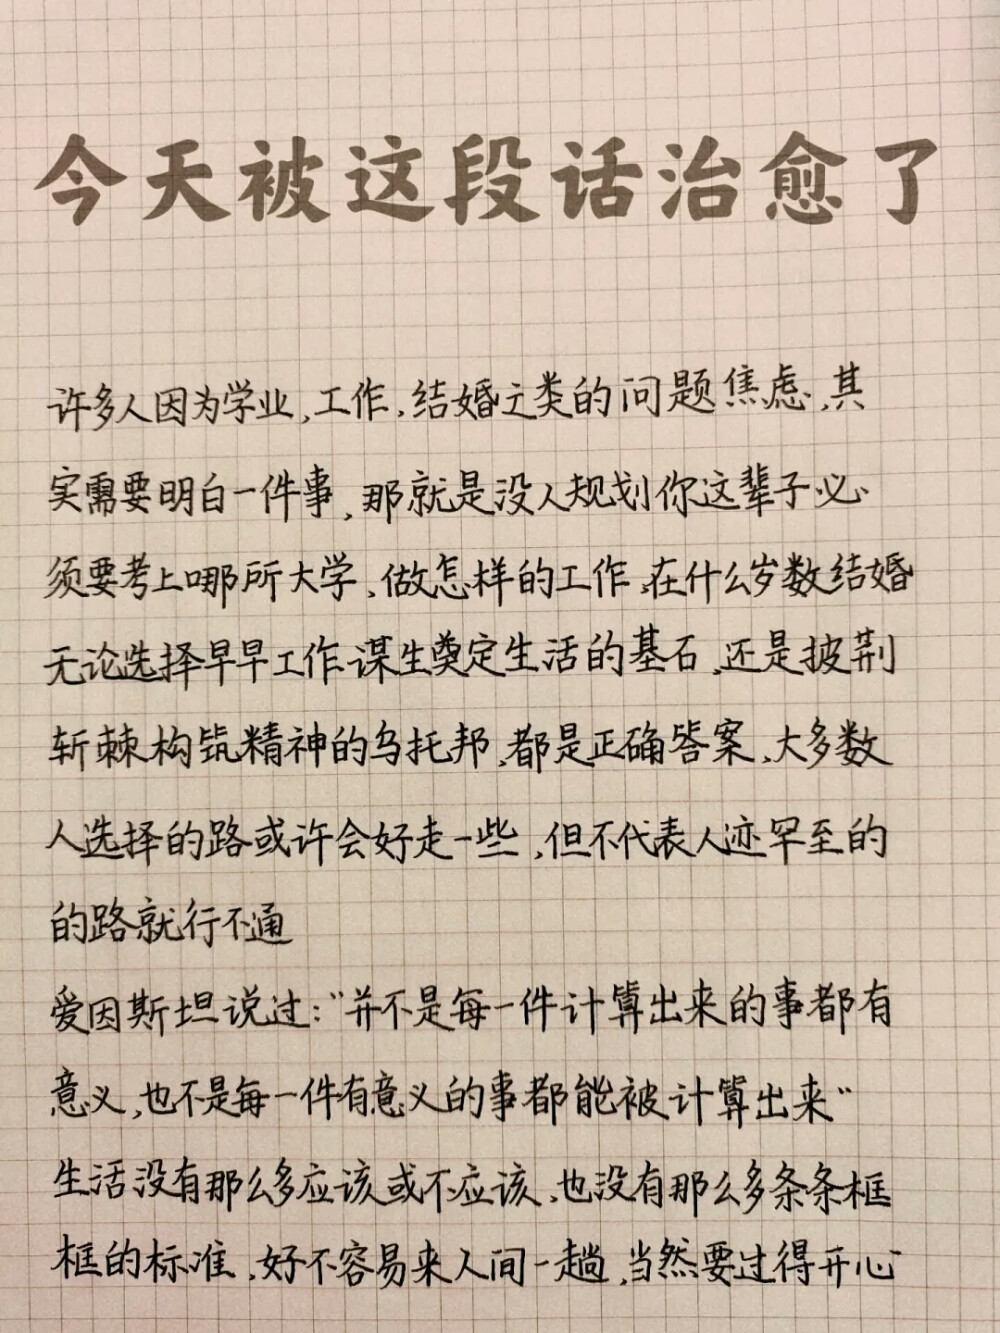 今天被这段话治愈了
许多人因为学业,工作,结婚之类的问题焦虑,其
实需要明白一件事,那就是没人规划你这辈子必
须要考上哪所大学,做怎样的工作,在什么岁数结婚
无论选择早早工作谋生奠定生活的基石,还是披荆
斩棘构筑精神的乌托邦,都是正确答案,大多数
人选择的路或许会好走一些,但不代表人迹罕至的
的路就行不通
爱因斯坦说过:"并不是每一件计算出来的事都有
意义,也不是每一件有意义的事都能被计算出来"
生活没有那么多应该或不应该,也没有那么多条条框
框的标准,好不容易来人间一趟,当然要过得开心"